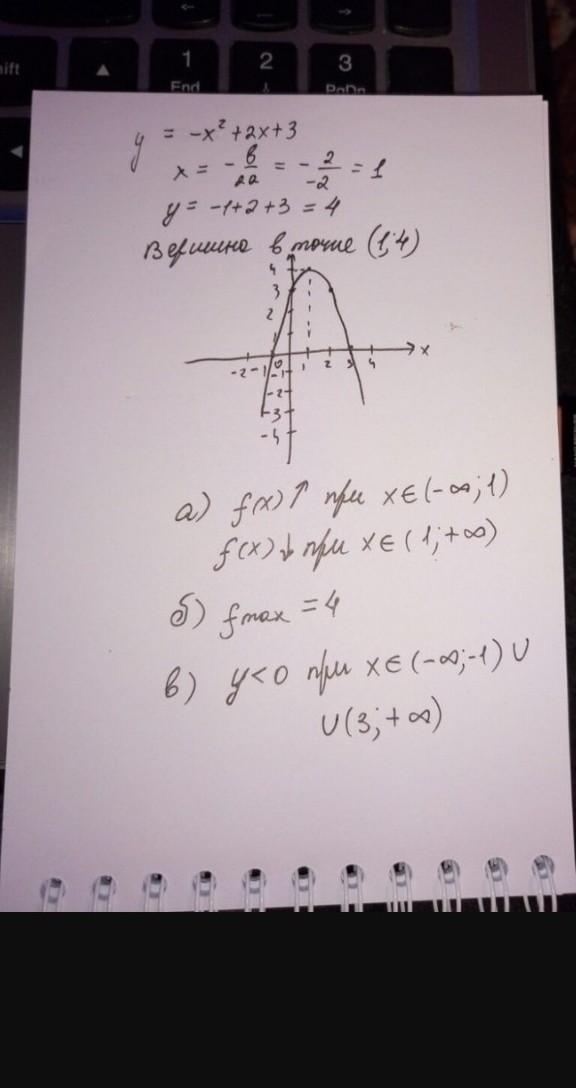 ift
1
End
2
3
PgDn
y = -x² + 2x + 3
x = - в/2a = - 2/-2 = 1
y = -1+2+3 = 4
Вершина в точке (1;4)
4
3
2
1
-2 -1 0 1 2 3 4 x
-1
-2
-3
-4
а) f(x)↑ при x∈(-∞;1)
f(x)↓ при x∈(1;+∞)
б) fmax = 4
в) y<0 при x∈(-∞;-1) ∪
∪(3;+∞)